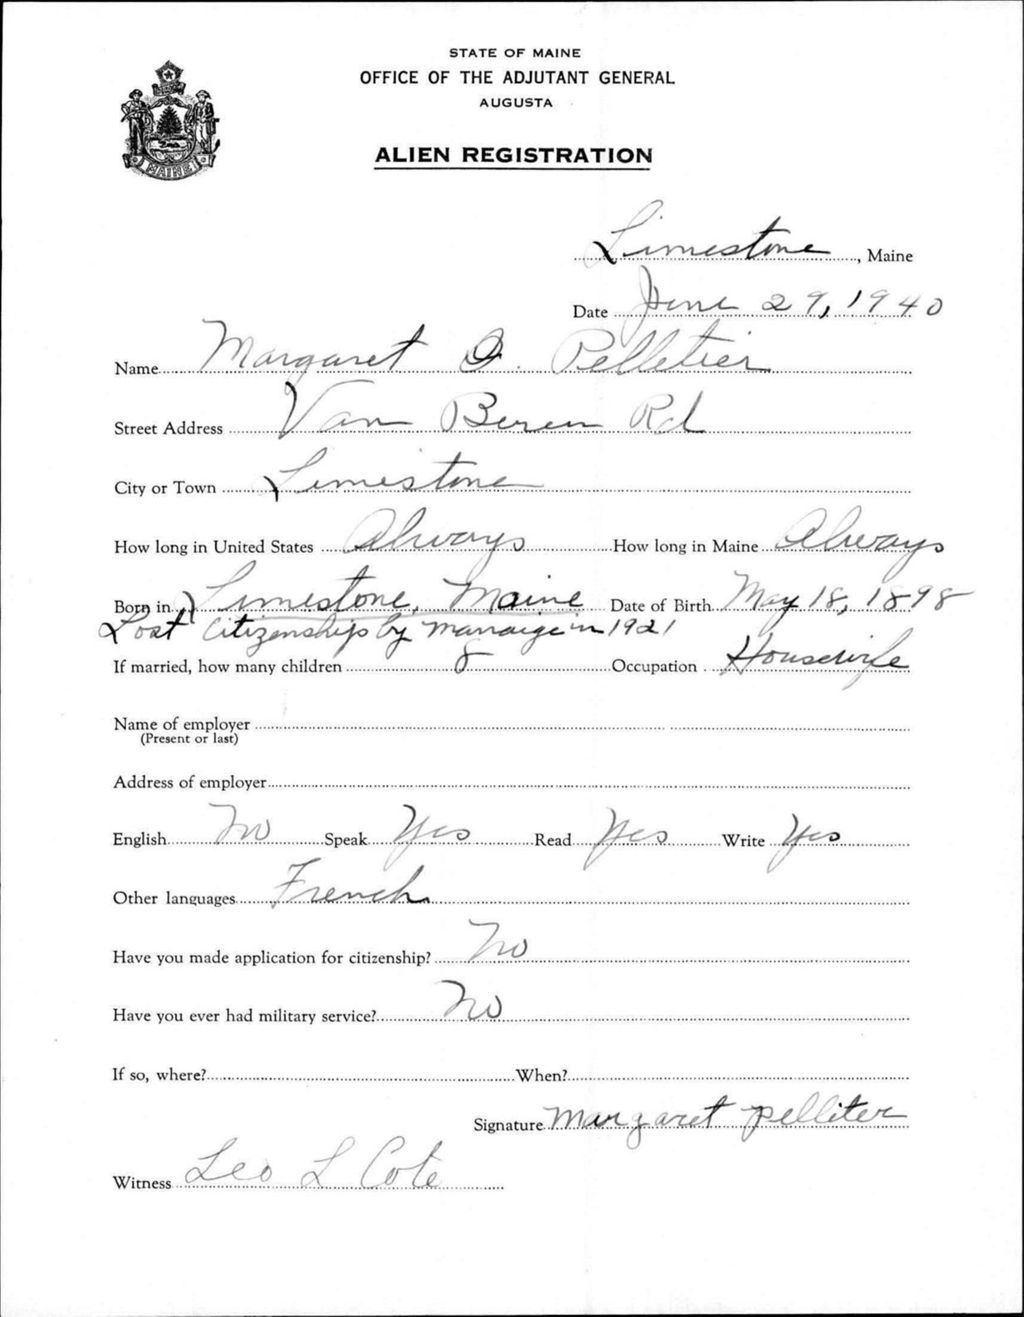 STATE OF MAINE
OFFICE OF THE ADJUTANT GENERAL
AUGUSTA
ALIEN REGISTRATION
MAINE
Limestone, Maine
Date June 29, 1940
Name Margaret Pelletier
Street Address Van Buren Rd
City or Town Limestone
How long in United States Always How long in Maine Always
Born in Limestone, Maine Date of Birth May 18, 1898
Lost Citizenship by marraige in 1921
If married, how many children 8 Occupation Housewife
Name of employer
(Present or last)
Address of employer
English No Speak Yes Read Yes Write Yes
Other languages French
Have you made application for citizenship? No
Have you ever had military service? No
If so, where? When?
Signature Margaret pelliter
Witness Leo L Cote